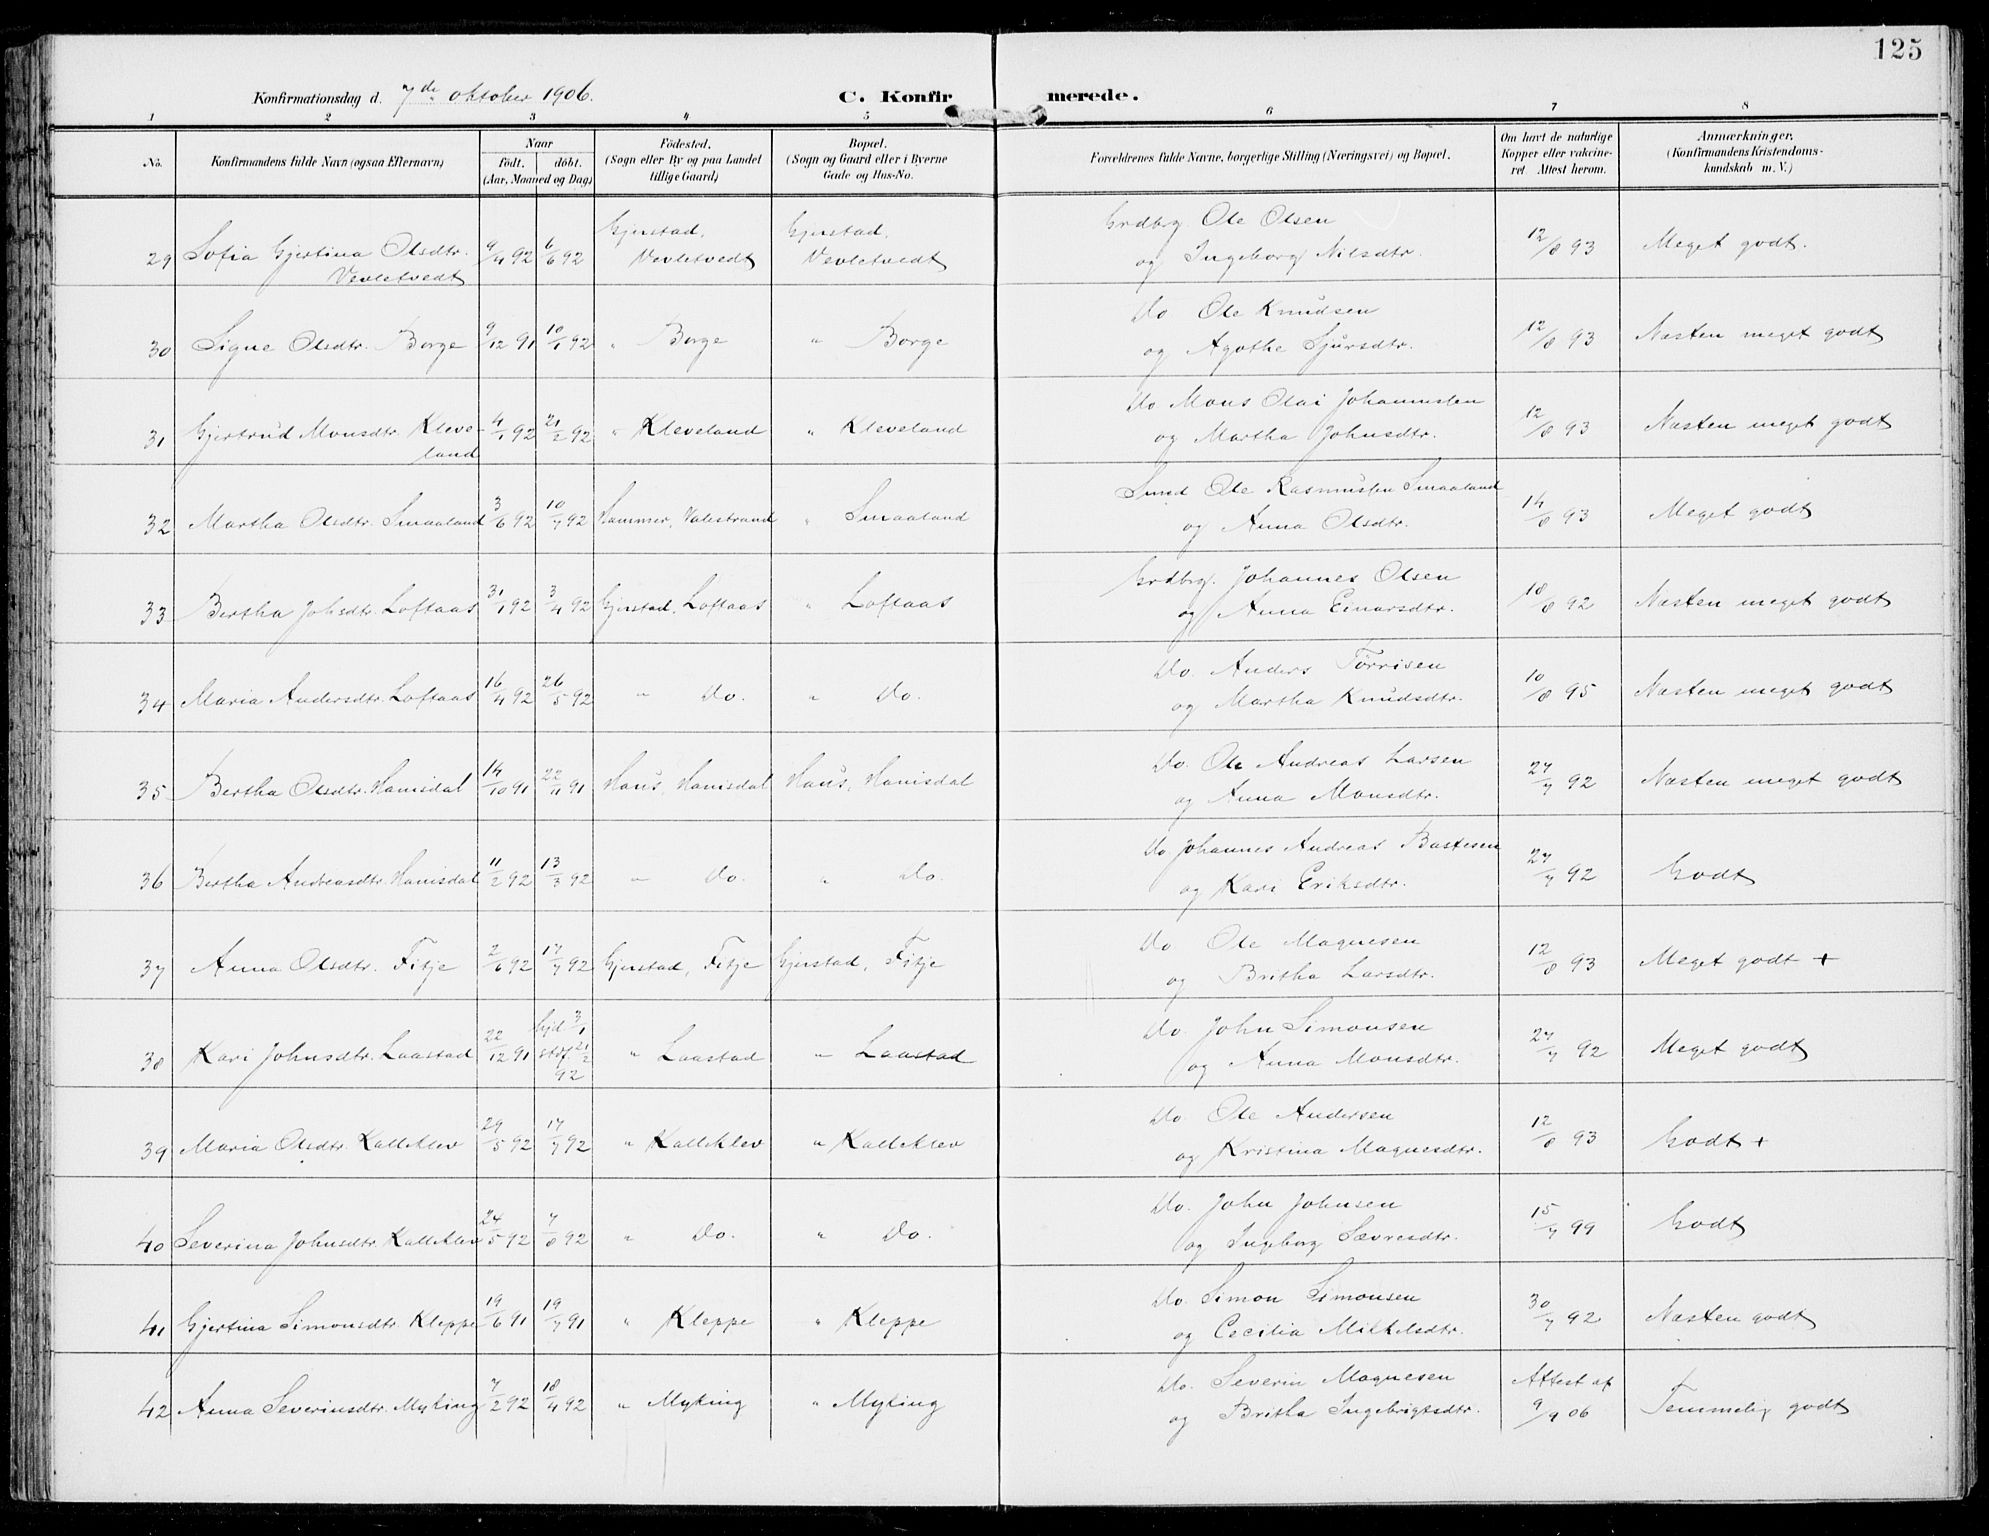 125
Konfirmationsdag d. 7de oktober 1906.
C. Konfirmerede.
1 2 3 4 5 6 7 8
No. | Konfirmandens fulde Navn (ogsaa Efternavn) | Naar født. døbt. (Aar, Maaned og Dag) | Fødested. (Sogn eller By og paa Landet tillige Gaard) | Bopæl. (Sogn og Gaard eller i Byerne Gade og Hus-No. | Forældrenes fulde Navne, borgerlige Stilling (Næringsvei) og Bopæl. | Om havt de naturlige Kopper eller vakcineret. Attest herom. | Anmærkninger. (Konfirmandens Kristendomskundskab m. V.)
29 Sofia Gjertina Olsdtr. Vevletvedt | 9/4 92 | 6/6 92 | Gjerstad, Vevletvedt | Gjerstad, Vevletvedt | Grdbrg. Ole Olsen og Ingeborg Nilsdtr. | 12/8 93 | Meget godt.
30 Signe Olsdtr. Borge | 9/12 91 | 10/1 92 | " Borge | " Borge | Do Ole Knudsen og Agathe Sjursdtr. | 12/8 93 | Næsten meget godt
31 Gjertrud Monsdtr. Kleveland | 4/1 92 | 21/2 92 | " Kleveland | " Kleveland | Do Mons Olai Johannesen og Martha Johnsdtr. | 12/8 93 | Næsten meget godt
32 Martha Olsdtr. Smaaland | 3/6 92 | 10/7 92 | Hammer, Valestrand | " Smaaland | Smed Ole Rasmussen Smaaland og Anna Olsdtr. | 14/8 93 | Meget godt
33 Bertha Johsdtr. Loftaas | 31/1 92 | 3/4 92 | Gjerstad, Loftaas | " Loftaas | Grdbrg. Johannes Olsen og Anna Einarsdtr. | 18/8 92 | Næsten meget godt
34 Maria Andersdtr. Loftaas | 16/4 92 | 26/5 92 | " Do. | " Do. | Do. Anders Tørrisen og Martha Knudsdtr. | 10/8 95 | Næsten meget godt
35 Bertha Olsdtr. Hanisdal | 14/10 91 | 22/11 91 | Haus, Hanisdal | Haus, Hanisdal | Do. Ole Andreas Larsen og Anna Monsdtr. | 27/7 92 | Næsten meget godt
36 Bertha Andreasdtr. Hanisdal | 11/2 92 | 13/3 92 | " Do. | " Do. | Do. Johannes Andreas Bastesen og Kari Eriksdtr. | 27/7 92 | Godt
37 Anna Olsdtr. Fitje | 2/6 92 | 17/7 92 | Gjerstad, Fitje | Gjerstad, Fitje | Do Ole Magnesen og Britha Larsdtr. | 12/8 93 | Meget godt +
38 Kari Johnsdtr. Laastad | 22/12 91 | Hjd 3/1 stdf. 21/2 92 | " Laastad | " Laastad | Do. John Simonsen og Anna Monsdtr. | 27/7 92 | Meget godt
39 Maria Olsdtr. Kalleklev | 29/5 92 | 17/7 92 | " Kalleklev | " Kalleklev | Do Ole Andersen og Kristina Magnesdtr. | 12/8 93 | Godt +
40 Severina Johnsdtr. Kalleklev | 24/5 92 | 7/8 92 | " Do. | " Do. | Do. John Johnsen og Ingeborg Sævresdtr. | 15/7 99 | Godt
41 Gjertina Simonsdtr. Kleppe | 19/6 91 | 19/7 91 | " Kleppe | " Kleppe | Do. Simon Simonsen og Cecilia Mikkelsdtr. | 30/7 92 | Næsten godt
42 Anna Severinsdtr. Myking | 7/2 92 | 18/4 92 | " Myking | " Myking | Do. Severin Magnesen og Britha Ingebrigtsdtr. | Attest af 9/9 06 | Temmelig godt